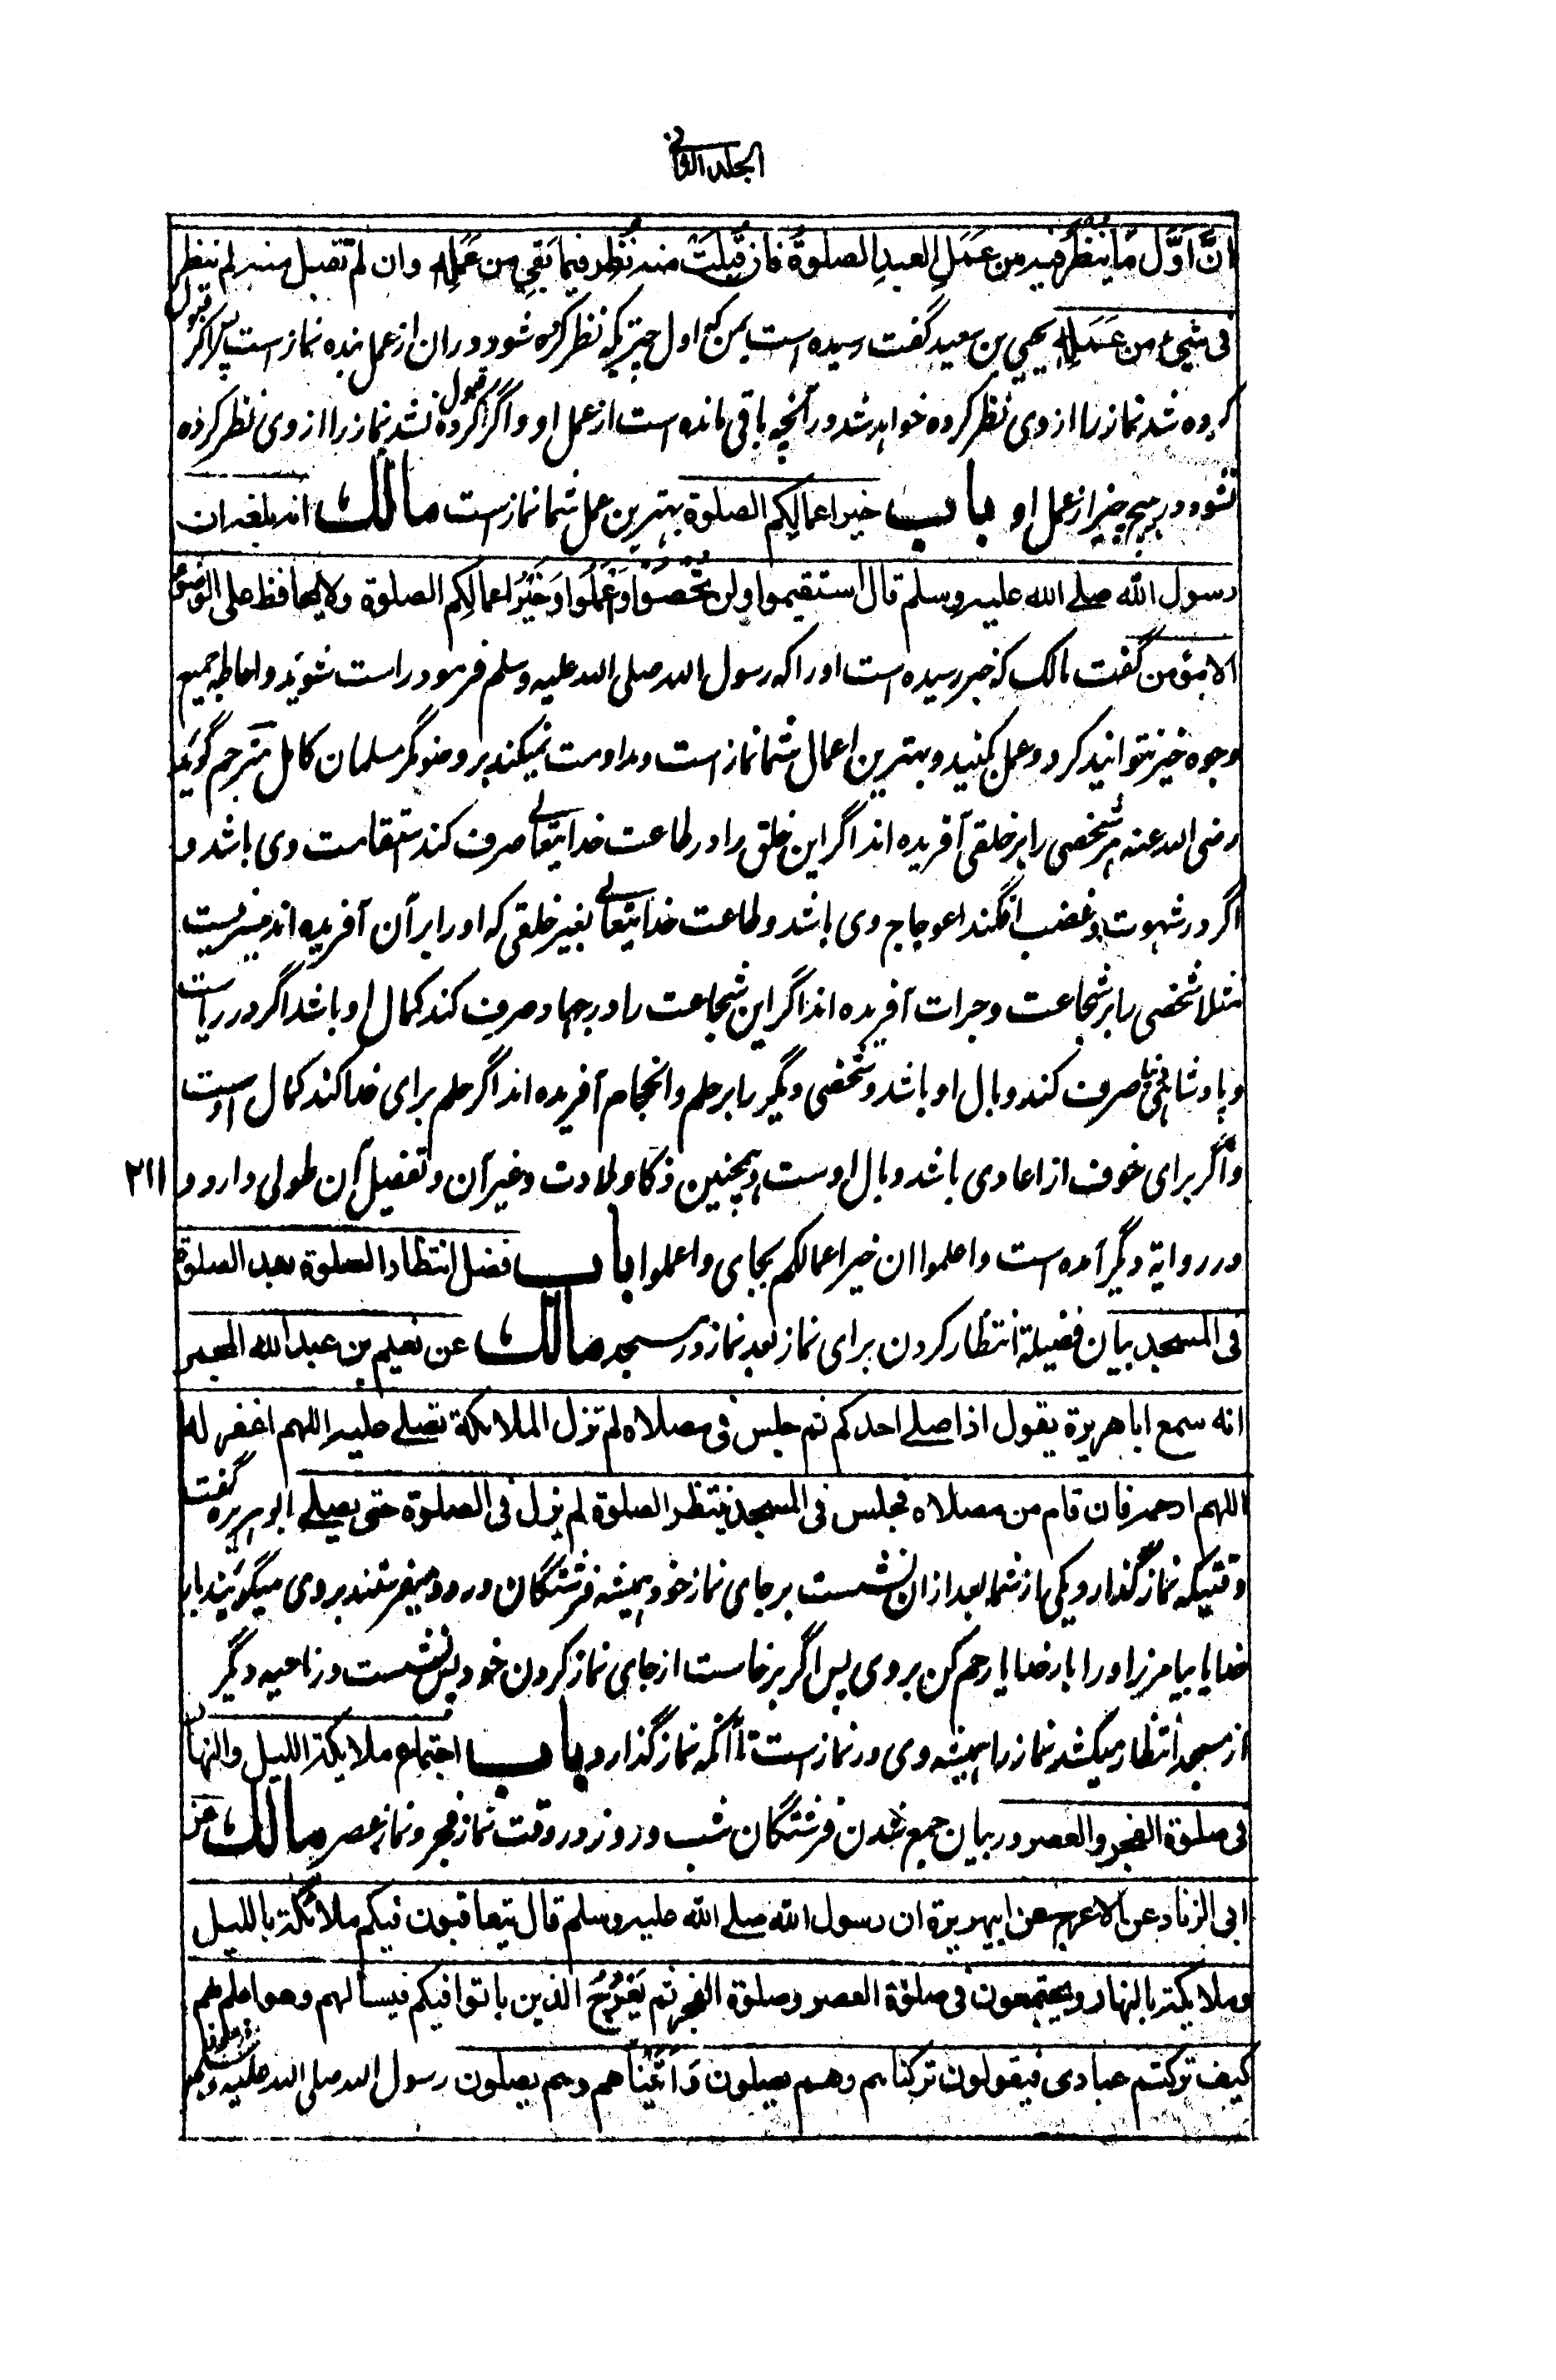 الجلد الثانی
اِنَّ اَوَّلَ مَا يُنْظَرُ فيه من عَمَلِ العبدِ الصلوةُ فان قُبِلَتْ منه نُظِر فيما بَقِيَ من عَمَلِه وان لم تقبل منه لم ينظر
فی شیء من عَمَلِه یحیی بن سعید گفت رسیده است بمن که اول چیزیکه نظر کرده شود دران از عمل بنده نماز است پس اگر قبول
کرده شد نماز را از وی نظر کرده خواهد شد در آنچه باقی مانده است از عمل او و اگر قبول کرده نشد نماز را از وی نظر کرده
نشود در هیچ چیز از عمل او باب خیر اعمالِکم الصلوة بهترین عمل شما نماز است مالك انه بلغه ان
رسول الله صلے الله علیه وسلم قال استقیموا ولن تُحْصُوا وَعْمَلُوا وَخَیْرُ اعمالِکم الصلوة ولا یحافظ علی الوضوء
الا مؤمن گفت مالک که خبر رسیده است او را که رسول الله صلی الله علیه وسلم فرمود راست شوید و احاطه جمیع
وجوه خیر نتوانید کرد و عمل کنید و بهترین اعمال شما نماز است و مداومت نمیکند بر وضو مگر مسلمان کامل مترجم گوید
رضی الله عنه هر شخصی را بر خلقی آفریده اند اگر این خلق را در طاعت خدایتعالی صرف کند استقامت وی باشد و
اگر در شهوت و غضب افگند اعوجاج وی باشد و طاعت خدایتعالی بغیر خلقی که او را بر آن آفریده اند میسر نیست
مثلا شخصی را بر شجاعت و جرات آفریده اند اگر این شجاعت را در جهاد صرف کند کمال او باشد اگر در ریاست
و پادشاهی دنیا صرف کند وبال او باشد و شخصی دیگر را بر حلم و انجام آفریده اند اگر حلم برای خدا کند کمال اوست
و اگر برای خوف از اعادی باشد وبال اوست و همچنین ذکا و بلادت و غیر آن و تفصیل آن طولی دارد و
۲۱۱
در روایة دیگر آمده است واعلموا ان خیر اعمالکم بجای واعملوا باب فضل انتظار الصلوة بعد الصلوة
فی المسجد بیان فضیلة انتظار کردن برای نماز بعد نماز در مسجد مالك عن نعیم بن عبد الله المجمر
انه سمع ابا هریرة یقول اذا صلے احدکم ثم جلس فی مصلاه لم تزل الملائکة تصلے علیه اللهم اغفر له
اللهم ارحمه فان قام من مصلاه فجلس فی المسجد ینتظر الصلوة لم یزل فی الصلوة حتی یصلے ابو هریره گفت
وقتیکه نماز گذارد یکی از شما بعد ازان نشست بر جای نماز خود همیشه فرشتگان درود میفرستند بر وی میگویند بار
خدایا بیامرز او را بار خدایا رحم کن بر وی پس اگر برخاست از جای نماز کردن خود پس نشست در ناحیه دیگر
از مسجد انتظار میکشد نماز را همیشه وی در نماز است تا آنکه نماز گذارد باب اجتماع ملایکة اللیل والنهار
فی صلوة الفجر والعصر در بیان جمع شدن فرشتگان شب و روز در وقت نماز فجر و نماز عصر مالك عن
ابی الزناد عن الاعرج عن ابیهریرة ان رسول الله صلے الله علیه وسلم قال یتعاقبون فیکم ملائکة باللیل
وملایکة بالنهار ویجتمعون فی صلوة العصر وصلوة الفجر ثم یَعْرُجُ الذین باتوا فیکم فیسألهم وهو اعلم بهم
کیف ترکتم عبادی فیقولون ترکناهم وهم یصلون وَاَتَیْنَاهم وهم یصلون رسول الله صلی الله علیه وسلم